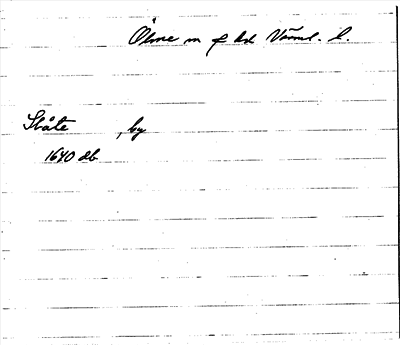 Ölme m fl hd Värml. l.
Ståte , by
1640 db